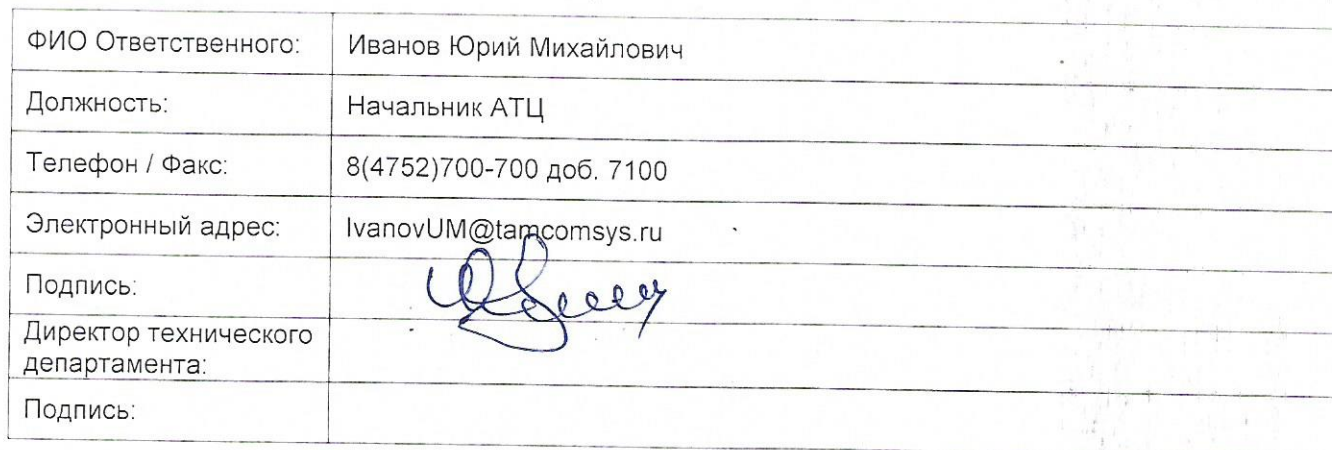 ФИО Ответственного: Иванов Юрий Михайлович
Должность: Начальник АТЦ
Телефон / Факс: 8(4752)700-700 доб. 7100
Электронный адрес: IvanovUM@tamcomsys.ru
Подпись:
Директор технического
департамента:
Подпись: